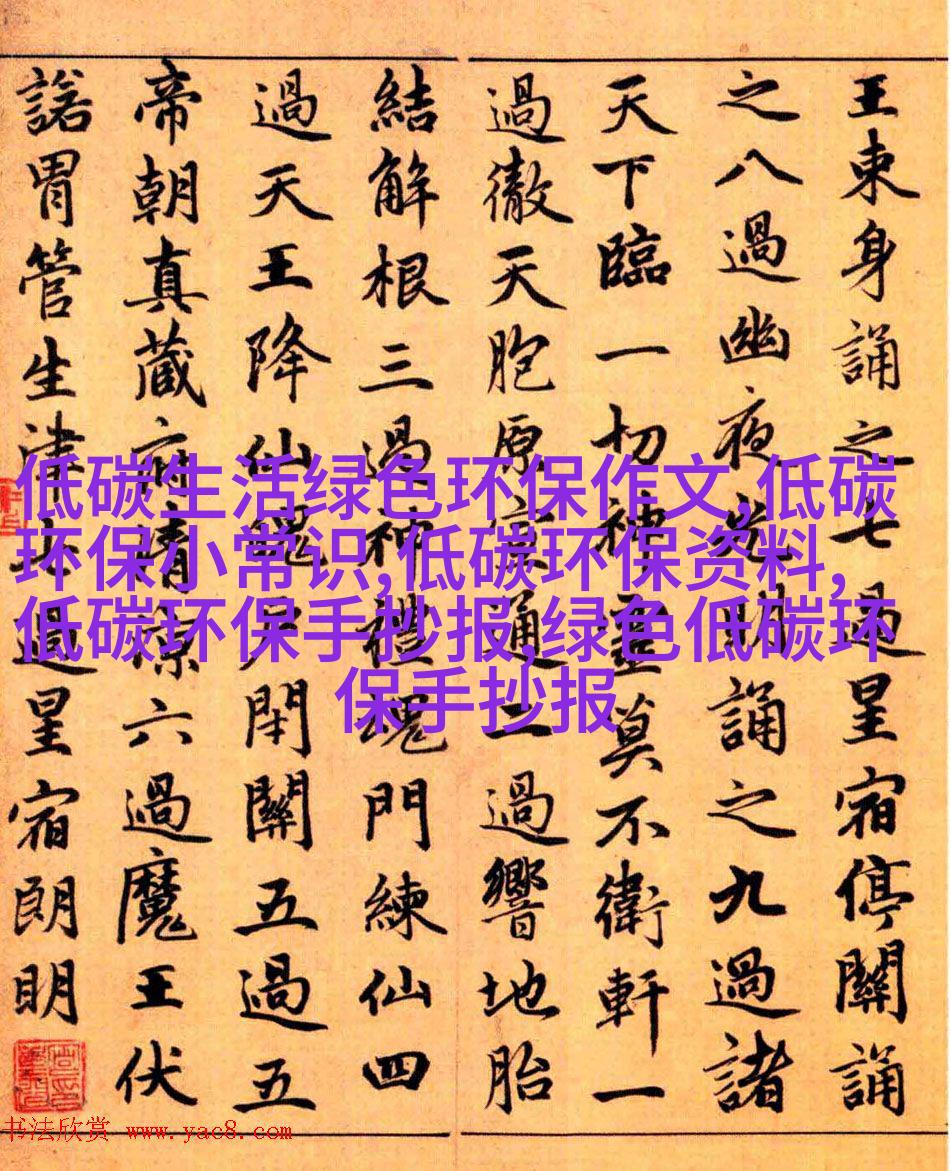 王東身誦之七過星宿停關誦
之八過幽夜誦之九過諸
天下臨一切神靈莫不衛軒一
過徹天胞原宣通二過響地胎
結解根三過神魂門練仙四
過天王降仙開關五過五
帝朝真藏府清涼六過魔王伏
諾胃管生津過星宿朗明
低碳生活绿色环保作文,低碳
环保小常识,低碳环保资料,
低碳环保手抄报,绿色低碳环
保手抄报
书法欣赏 www.yac8.com